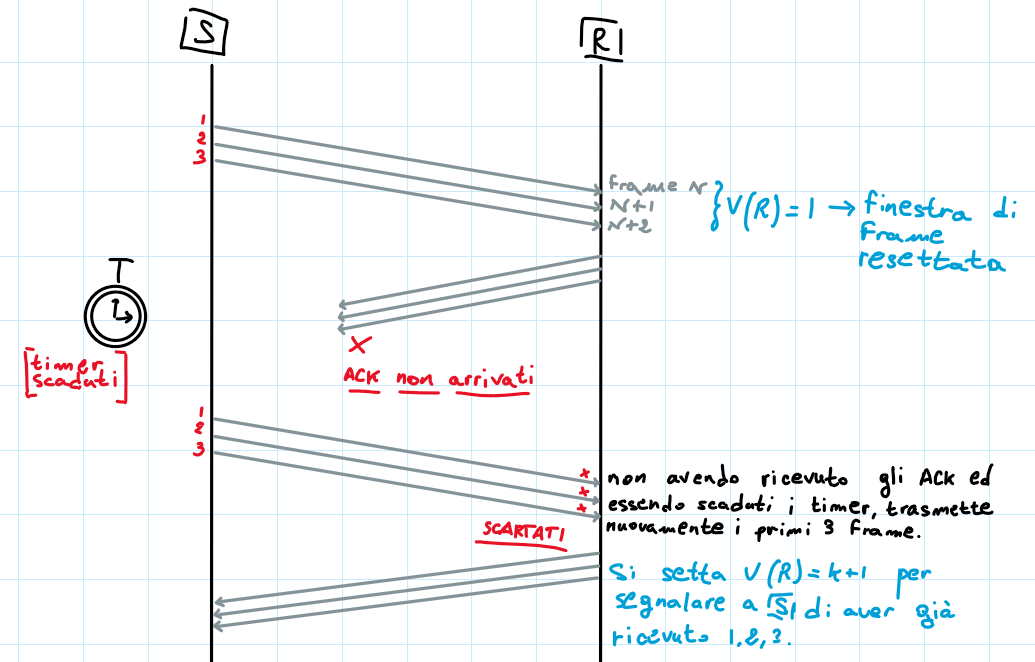 S
R
1
2
3
frame N
N+1
N+2
V(R)=1 → finestra di
frame
resettata
T
[timer
scaduti]
X
ACK non arrivati
1
2
3
x
x
x
non avendo ricevuto gli ACK ed
essendo scaduti i timer, trasmette
nuovamente i primi 3 frame.
SCARTATI
Si setta V(R)=k+1 per
segnalare a S di aver già
ricevuto 1,2,3.